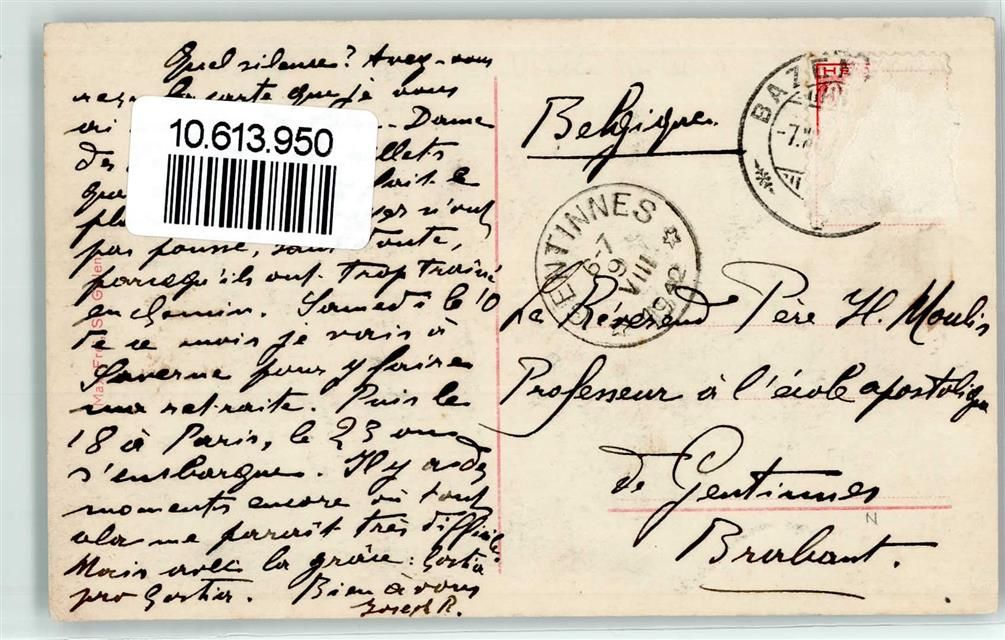 Quel silence? Avez-vous
la carte que je vous
ai Dame
des
10.613.950
fait le
n'ont
pas poussé, sans doute,
parcequ'ils ont trop traîné
en chemin. Samedi le 10
de ce mois je vais à
Saverne pour y faire
ma retraite. Puis le
18 à Paris, le 23 on
s'embarque. Il y a des
moments encore où tout
cela me paraît très difficile
Mais avec la grâce: Hostia
pro Hostia. Bien à vous
Joseph R.
Belgique
BA
-7.
GENTINNES
6-7
9
VIII
1912
Le Révérend Père H. Moulis
Professeur à l'école apostolique
de Gentinnes
Brabant.
N